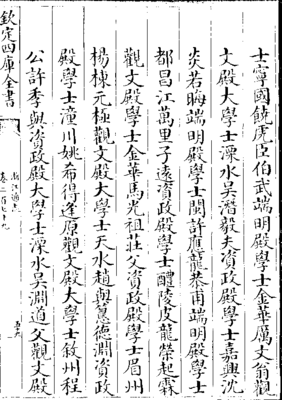 士寧國饒虎臣伯武端明殿學士金華厲文翁觀
文殿大學士溧水吳潛毅夫資政殿學士嘉興沈
炎若晦端明殿學士閩許應龍恭甫端明殿學士
都昌江萬里子遠資政殿學士醴陵皮龍榮起霖
觀文殿學士金華馬光祖莊父資政殿學士眉州
楊棟元極觀文殿大學士天水趙與德淵資政
殿學士潼川姚希得逢原觀文殿大學士敘州程
公許季與資政殿大學士溧水吳淵道父觀文殿
欽定四庫全書
浙江通志
卷二百七十九